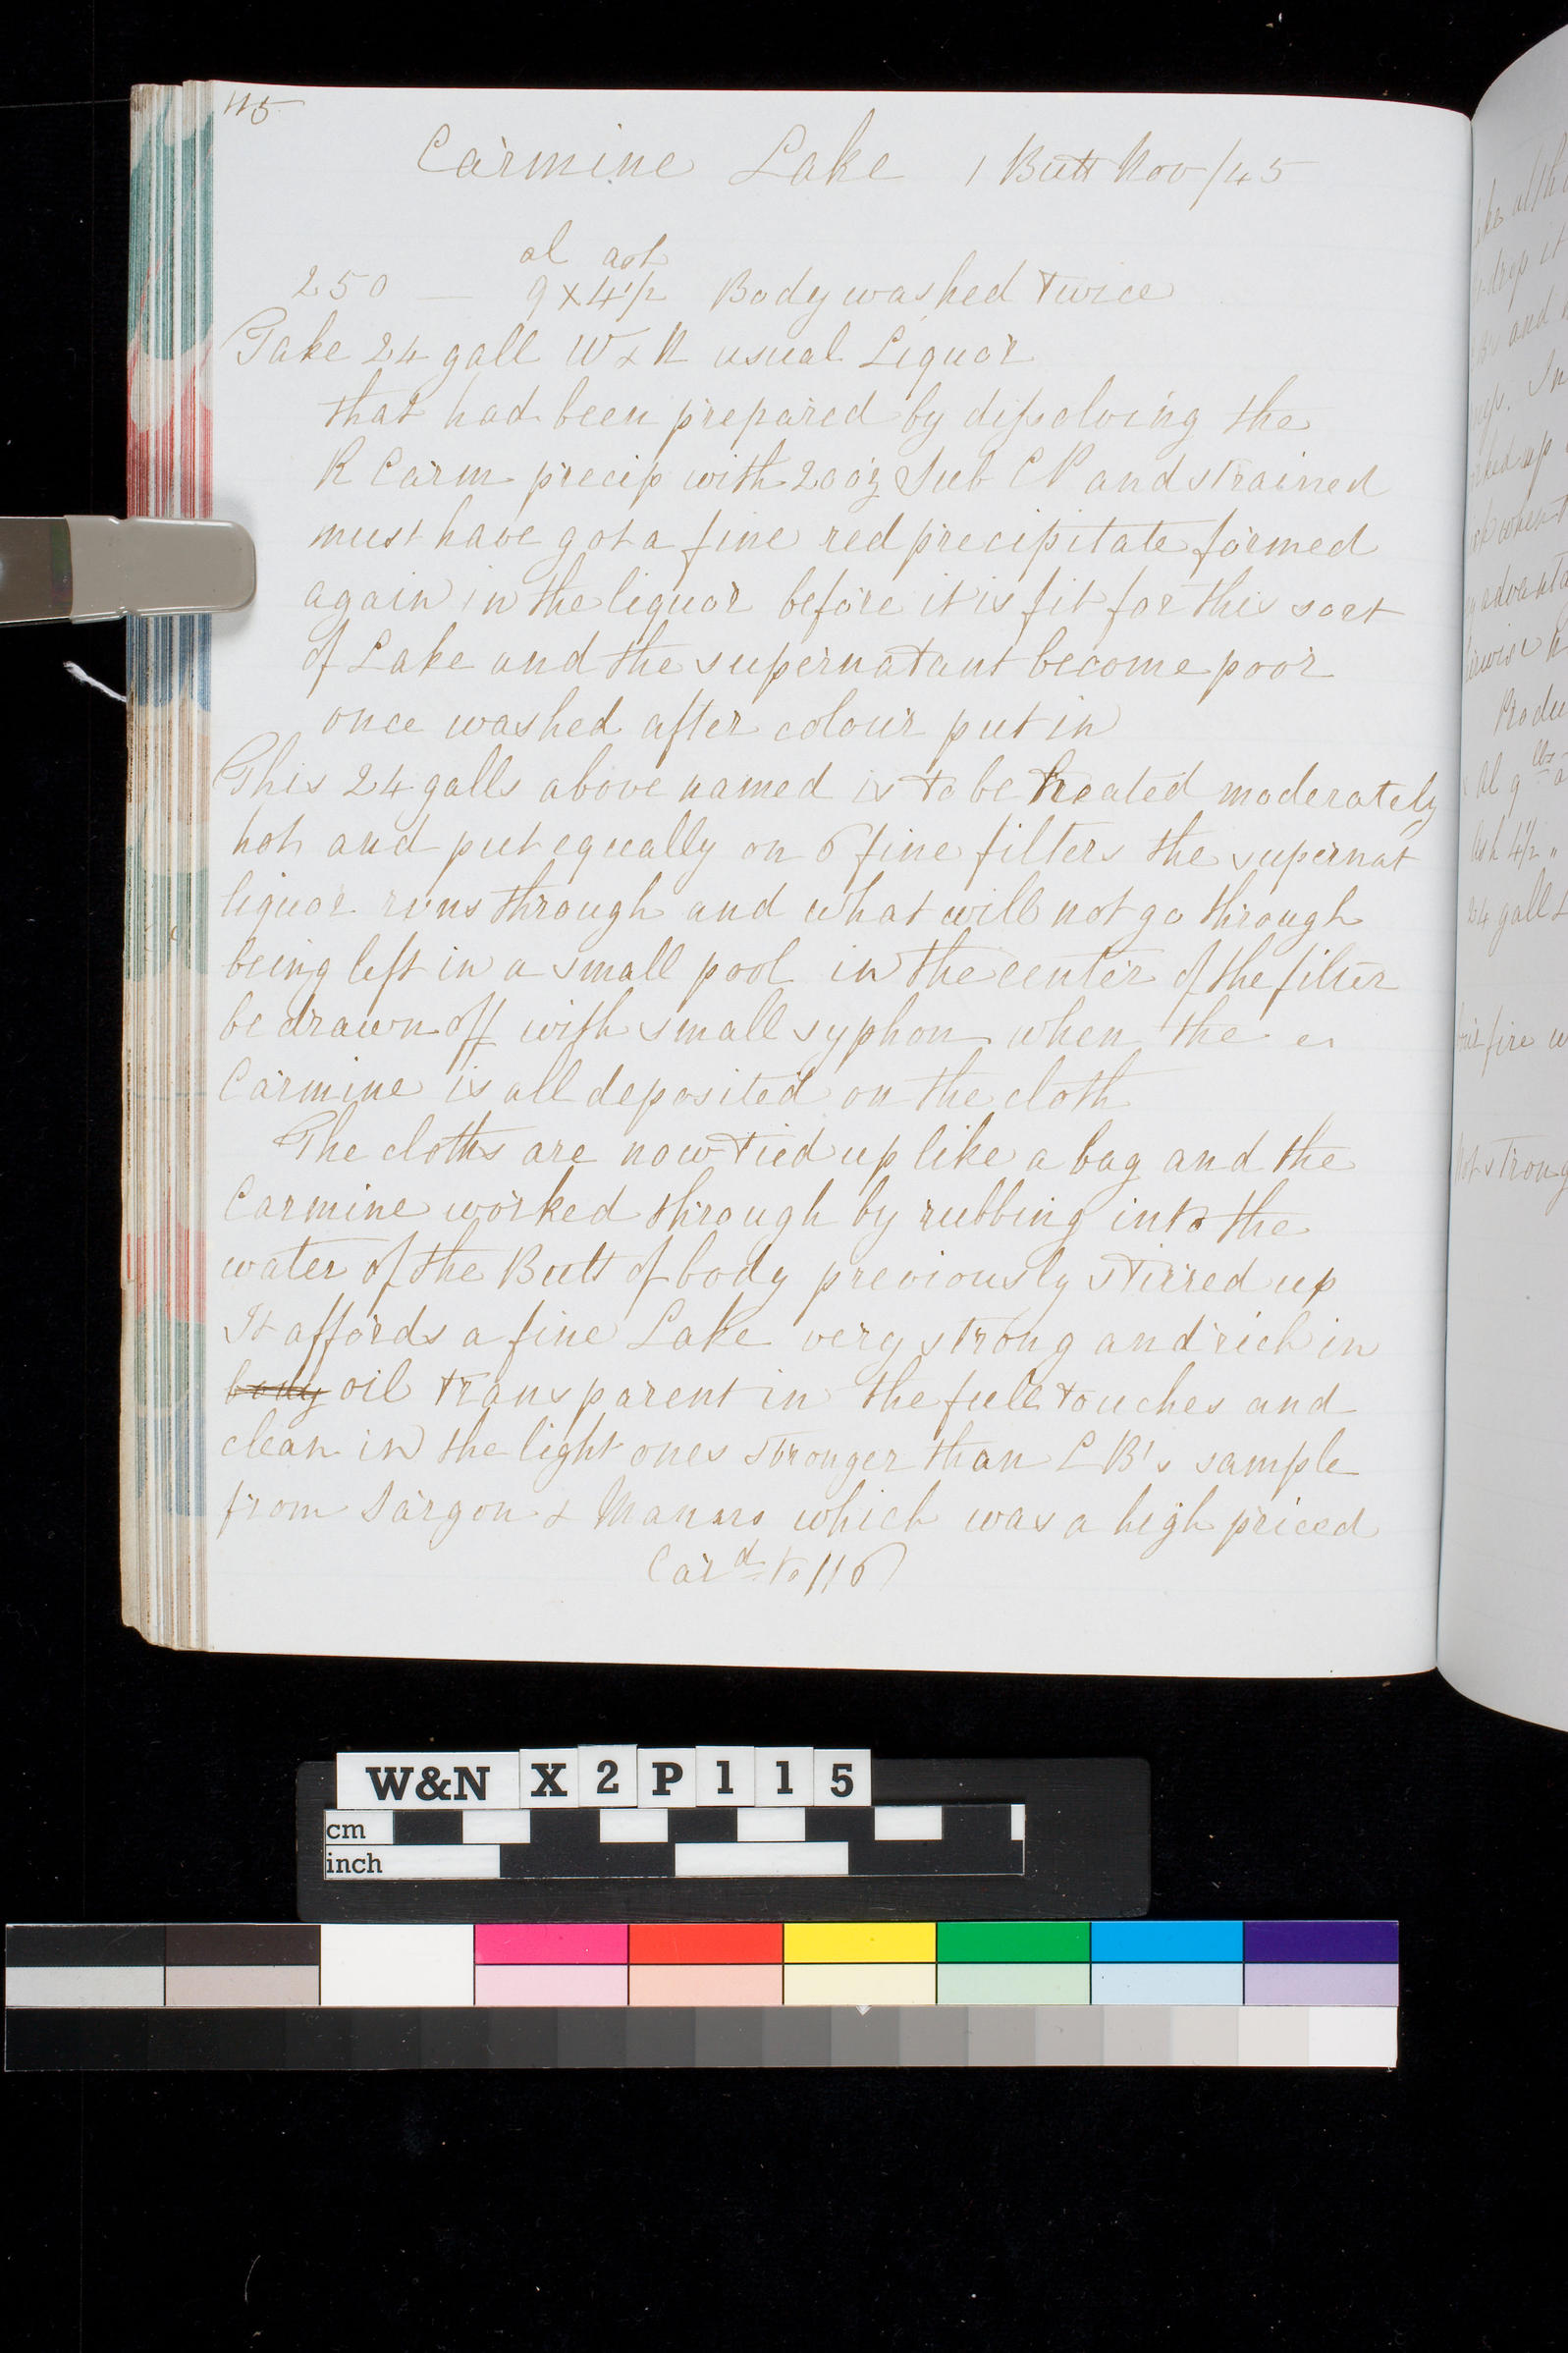 115
Carmine Lake 1 Butt Nov/45
al ash
250 — 9 x 4 1/2 Body washed twice
Take 24 gall W & N usual Liquor
that had been prepared by dissolving the
R Carm precip with 20 oz Sub C P and strained
must have got a fine red precipitate formed
again in the liquor before it is fit for this sort
of Lake and the supernatant become poor
once washed after colour put in
This 24 galls above named is to be heated moderately
hot and put equally on 6 fine filters the supernat
liquor runs through and what will not go through
being left in a small pool in the center of the filter
be drawn off with small syphon when the
Carmine is all deposited on the cloth
The cloths are now tied up like a bag and the
Carmine worked through by rubbing into the
water of the Butt of body previously stirred up
It affords a fine Lake very strong and rich in
body oil transparent in the full touches and
clean in the light ones stronger than LB's sample
from & which was a high priced
Card to 116
W&N X 2 P 1 1 5
cm
inch